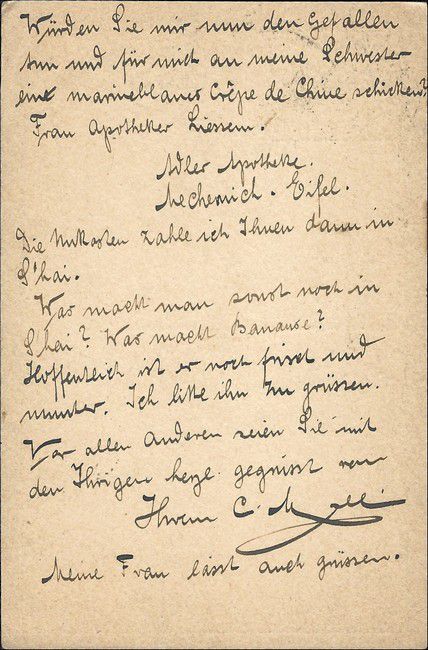 Würden Sie mir nun den Gefallen
tun und für mich an meine Schwester
eine marineblaues Crêpe de Chine schicken?
Frau Apotheker Liessem.
Adler Apotheke.
Mechernich. Eifel.
Die Unkosten zahle ich Ihnen dann in
S'hai.
Was macht man sonst noch in
S'hai? Was macht Banause?
Hoffentlich ist er noch frisch und
munter. Ich bitte ihn zu grüssen.
Vor allen Anderen seien Sie mit
den Ihrigen herzl. gegrüsst von
Ihrem C.
Meine Frau lässt auch grüssen.